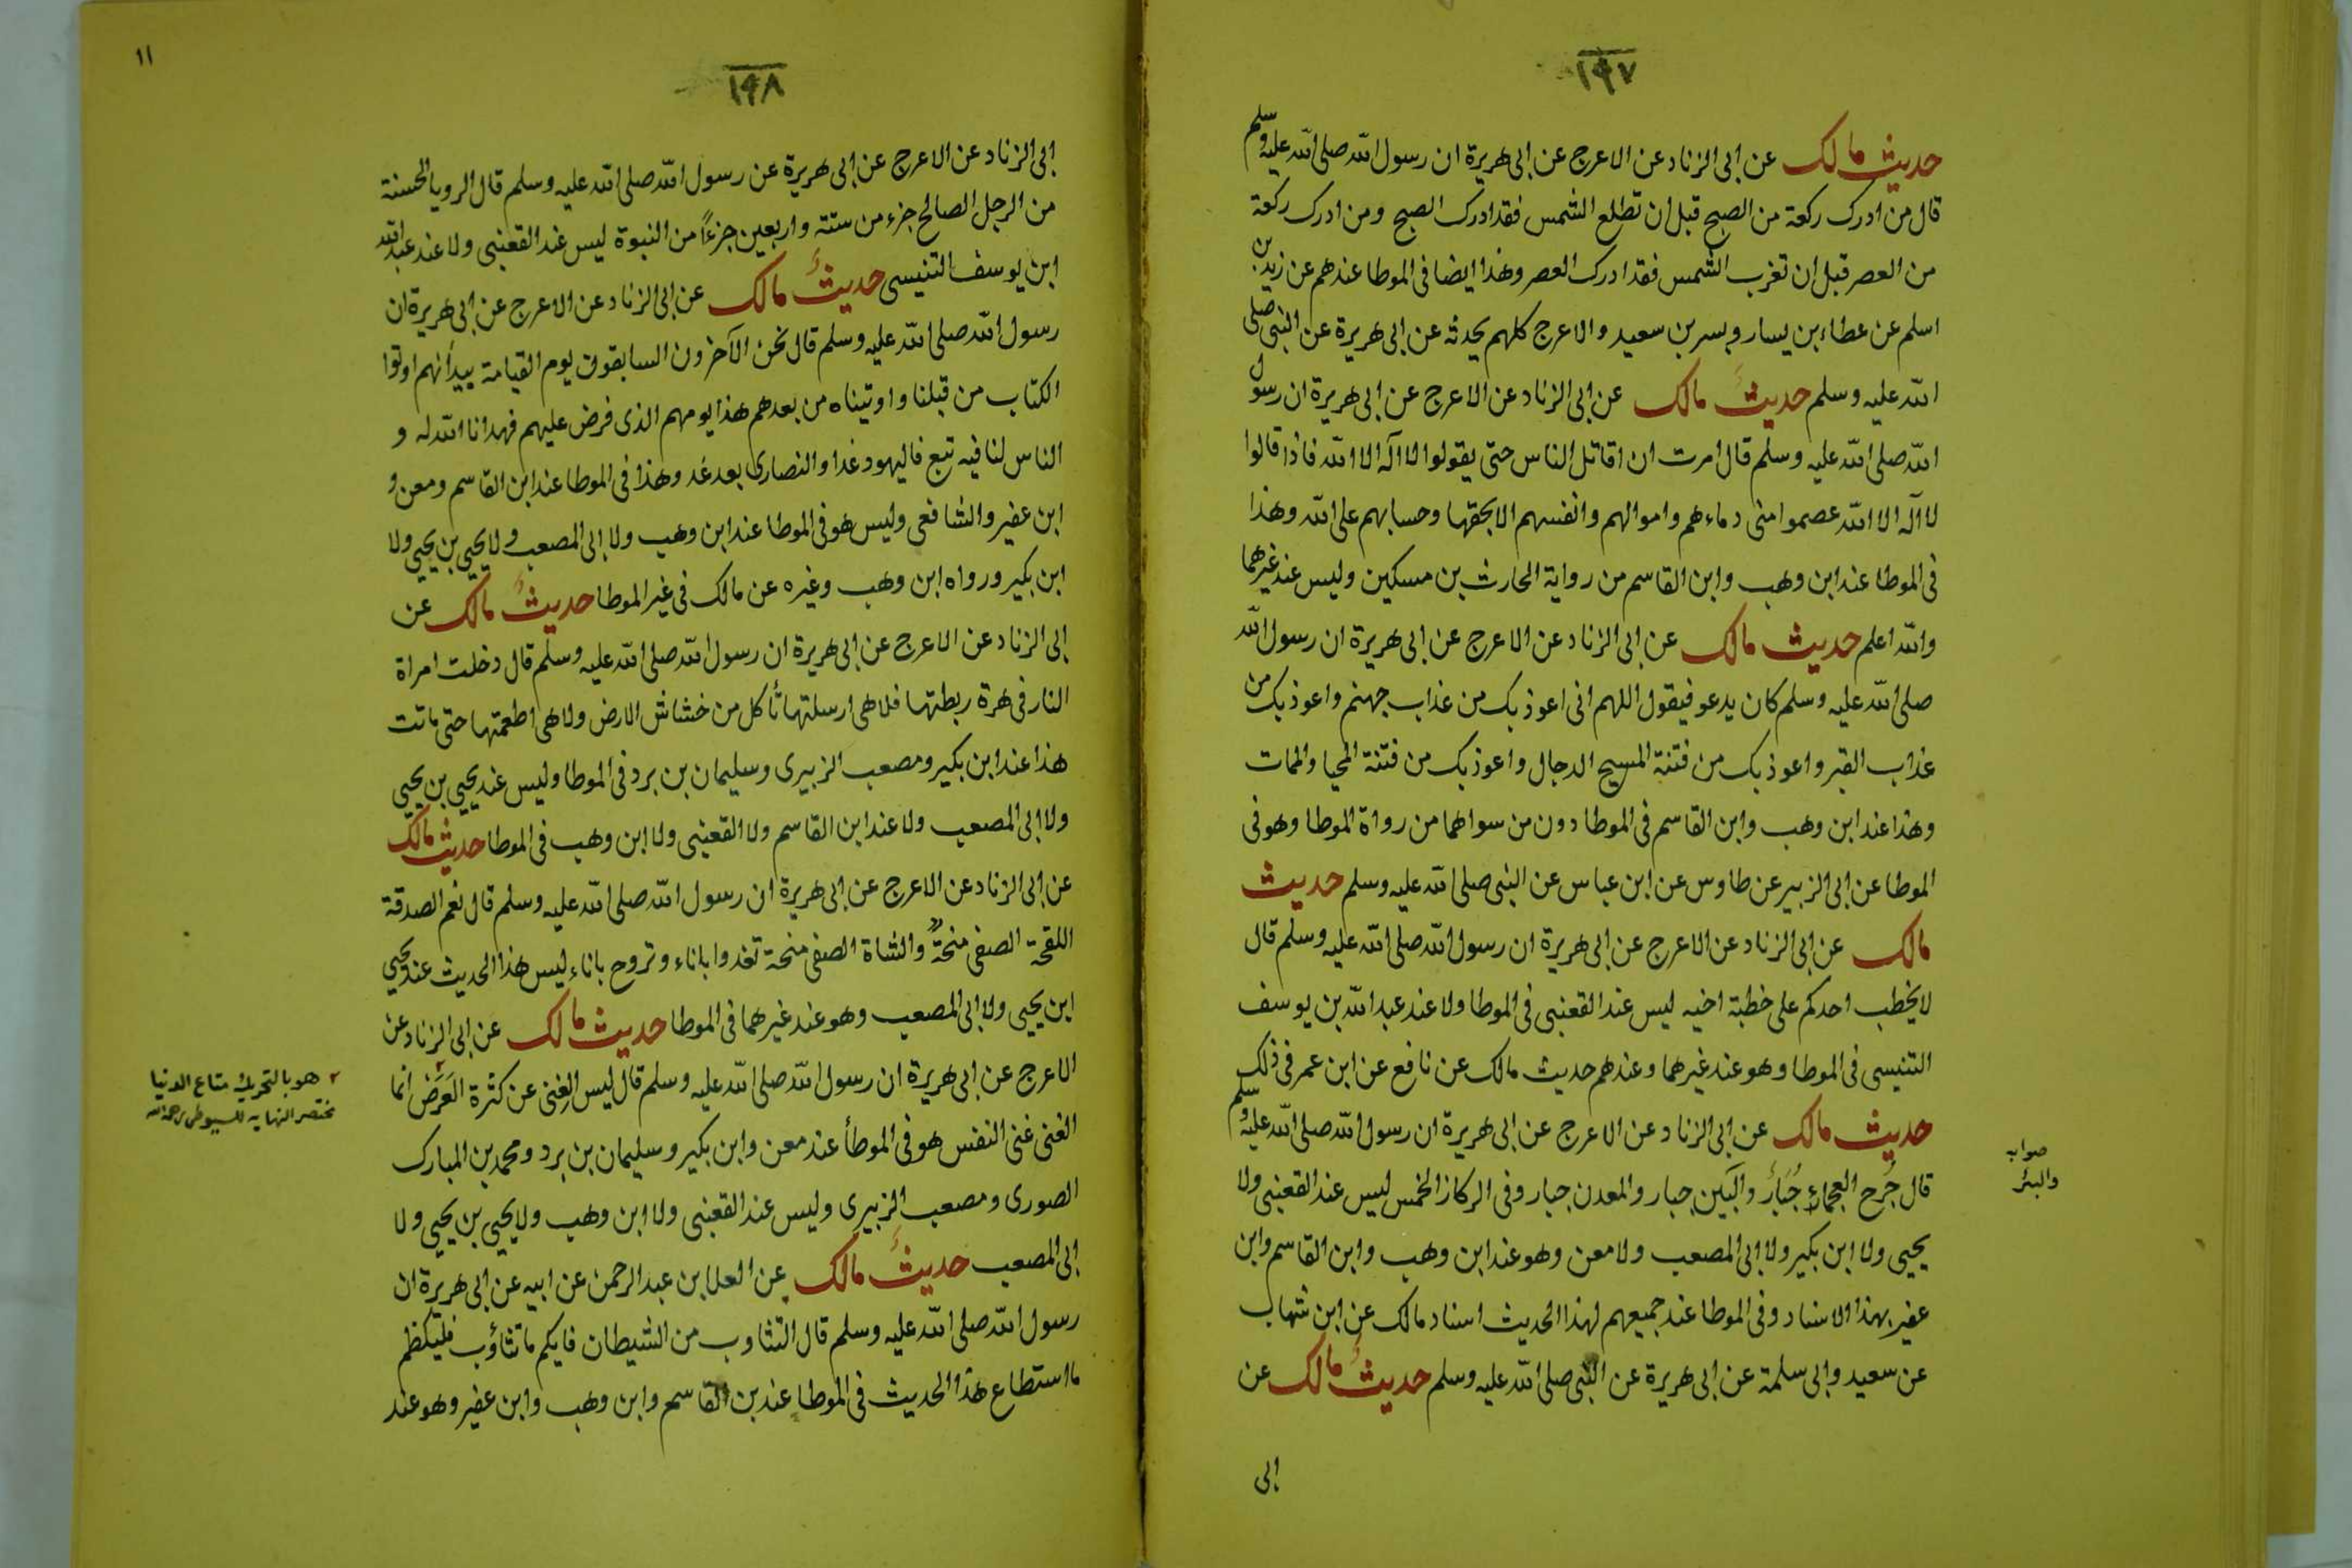 ١٩٧
حديث مالك عن ابى الزناد عن الاعرج عن ابى هريرة ان رسول الله صلى الله عليه وسلم
قال من ادرك ركعة من الصبح قبل ان تطلع الشمس فقد ادرك الصبح ومن ادرك ركعة
من العصر قبل ان تغرب الشمس فقد ادرك العصر وهذا ايضا فى الموطا عندهم عن زيد بن
اسلم عن عطاء بن يسار وبسر بن سعيد والاعرج كلهم يحدثه عن ابى هريرة عن النبى صلى
الله عليه وسلم حديث مالك عن ابى الزناد عن الاعرج عن ابى هريرة ان رسول
الله صلى الله عليه وسلم قال امرت ان اقاتل الناس حتى يقولوا لا اله الا الله فاذا قالوا
لا اله الا الله عصموا منى دماءهم واموالهم وانفسهم الا بحقها وحسابهم على الله وهذا
فى الموطا عند ابن وهب وابن القاسم من رواية الحارث بن مسكين وليس عند غيرهما
والله اعلم حديث مالك عن ابى الزناد عن الاعرج عن ابى هريرة ان رسول الله
صلى الله عليه وسلم كان يدعو فيقول اللهم انى اعوذ بك من عذاب جهنم واعوذ بك من
عذاب القبر واعوذ بك من فتنة المسيح الدجال واعوذ بك من فتنة المحيا والممات
وهذا عند ابن وهب وابن القاسم فى الموطا دون من سواهما من رواة الموطا وهو فى
الموطا عن ابى الزبير عن طاوس عن ابن عباس عن النبى صلى الله عليه وسلم حديث
مالك عن ابى الزناد عن الاعرج عن ابى هريرة ان رسول الله صلى الله عليه وسلم قال
لا يخطب احدكم على خطبة اخيه ليس عند القعنبى فى الموطا ولا عند عبد الله بن يوسف
التنيسى فى الموطا وهو عند غيرهما وعندهم حديث مالك عن نافع عن ابن عمر فى ذلك
حديث مالك عن ابى الزناد عن الاعرج عن ابى هريرة ان رسول الله صلى الله عليه وسلم
قال جُرح العجماء جُبَارٌ والبَين جبار والمعدن جبار وفى الركاز الخمس ليس عند القعنبى ولا
صوابه
والبئر
يحيى ولا ابن بكير ولا ابى المصعب ولا معن وهو عند ابن وهب وابن القاسم وابن
عفير بهذا الاسناد وفى الموطا عند جميعهم لهذا الحديث اسناد مالك عن ابن شهاب
عن سعيد وابى سلمة عن ابى هريرة عن النبى صلى الله عليه وسلم حديثُ مالك عن
ابى
١١
١٩٨
ابى الزناد عن الاعرج عن ابى هريرة عن رسول الله صلى الله عليه وسلم قال الرويا الحسنة
من الرجل الصالح جزء من ستة واربعين جزءًا من النبوة ليس عند القعنبى ولا عند عبد الله
ابن يوسف التنيسى حديثُ مالك عن ابى الزناد عن الاعرج عن ابى هريرة ان
رسول الله صلى الله عليه وسلم قال نحن الآخرون السابقون يوم القيامة بيد أنهم اوتوا
الكتاب من قبلنا واوتيناه من بعدهم هذا يومهم الذى فرض عليهم فهدانا الله له و
الناس لنا فيه تبع فاليهود غدا والنصارى بعد غد وهذا فى الموطا عند ابن القاسم ومعن و
ابن عفير والشافعى وليس هو فى الموطا عند ابن وهب ولا ابى المصعب ولا يحيى بن يحيى ولا
ابن بكير ورواه ابن وهب وغيره عن مالك فى غير الموطا حديثُ مالك عن
ابى الزناد عن الاعرج عن ابى هريرة ان رسول الله صلى الله عليه وسلم قال دخلت امراة
النار فى هرة ربطتها فلا هى ارسلتها تأكل من خشاش الارض ولا هى اطعمتها حتى ماتت
هذا عند ابن بكير ومصعب الزبيرى وسليمان بن برد فى الموطا وليس عند يحيى بن يحيى
ولا ابى المصعب ولا عند ابن القاسم ولا القعنبى ولا ابن وهب فى الموطا حديث مالك
عن ابى الزناد عن الاعرج عن ابى هريرة ان رسول الله صلى الله عليه وسلم قال نعم الصدقة
اللقحة الصفى منحةً والشاة الصفى منحة تغدوا باناء وتروح باناء ليس هذا الحديث عند يحيى
ابن يحيى ولا ابى المصعب وهو عند غيرهما فى الموطا حديث مالك عن ابى الزناد عن
الاعرج عن ابى هريرة ان رسول الله صلى الله عليه وسلم قال ليس الغِنى عن كثرة العَرَض انما
٢ هو بالتحريك متاع الدنيا
مختصر النهايه للسيوطى رحمه الله
الغنى غنى النفس هو فى الموطأ عند معن وابن بكير وسليمان بن برد ومحمد بن المبارك
الصورى ومصعب الزبيرى وليس عند القعنبى ولا ابن وهب ولا يحيى بن يحيى ولا
ابى المصعب حديثُ مالك عن العلا بن عبد الرحمن عن ابيه عن ابى هريرة ان
رسول الله صلى الله عليه وسلم قال التثاوب من الشيطان فايكم ما تثاؤب فليكظم
ما استطاع هذا الحديث فى الموطا عند بن القاسم وابن وهب وابن عفير وهو عند